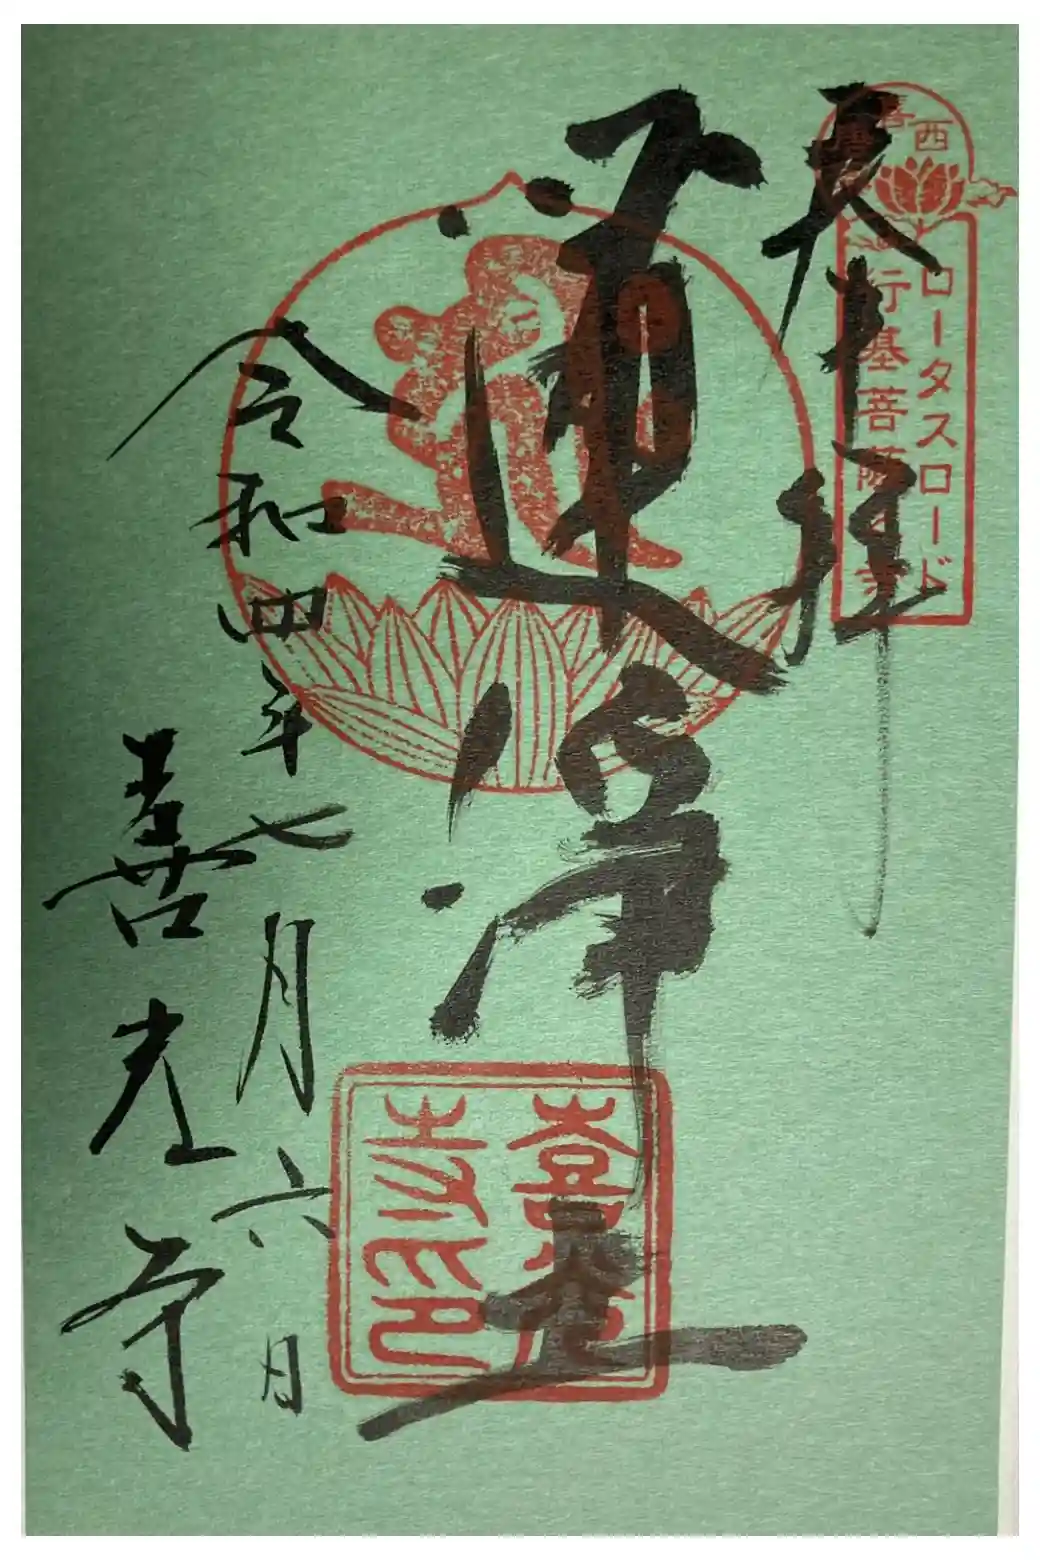 西喜唐
ロータスロード
行基菩薩の寺
奉拝
蓮浄土
喜光寺印
令和四年七月六日
喜光寺